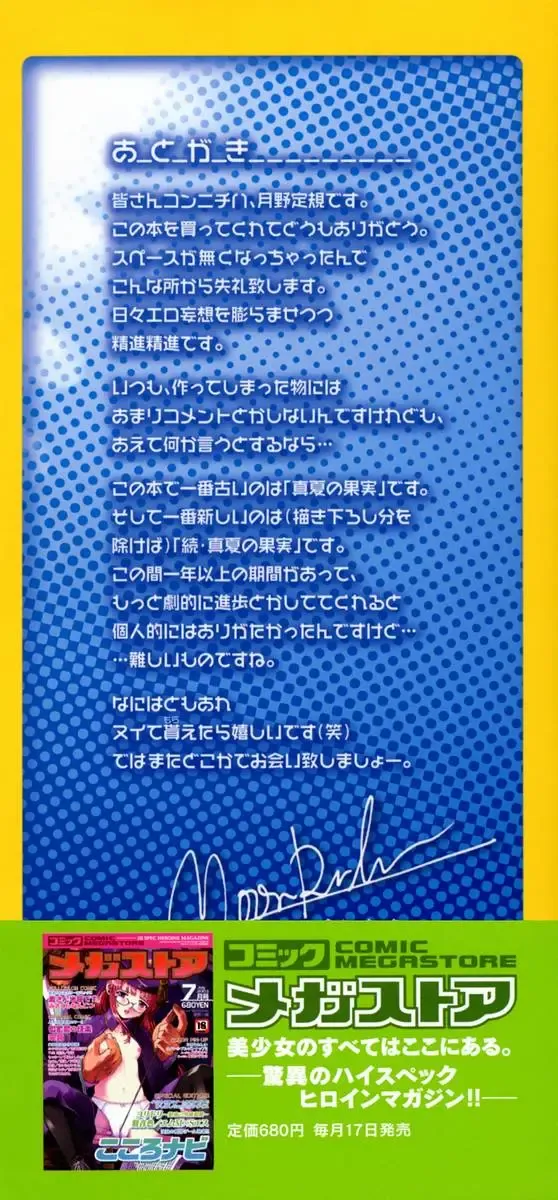 あ_と_が_き_________
皆さんコンニチハ、月野定規です。
この本を買ってくれてどうもありがとう。
スペースが無くなっちゃったんで
こんな所から失礼致します。
日々エロ妄想を膨らませつつ
精進精進です。
いつも、作ってしまった物には
あまりコメントとかしないんですけれども、
あえて何か言うとするなら…
この本で一番古いのは「真夏の果実」です。
そして一番新しいのは(描き下ろし分を
除けば)「続・真夏の果実」です。
この間一年以上の期間があって、
もっと劇的に進歩とかしててくれると
個人的にはありがたかったんですけど…
…難しいものですね。
なにはともあれ
ヌイて貰えたら嬉しいです(笑)
ではまたどこかでお会い致しましょー。
コミック COMIC MEGASTORE
メガストア
美少女のすべてはここにある。
―驚異のハイスペック
ヒロインマガジン!!―
定価680円 毎月17日発売
コミック COMIC MEGASTORE
メガストア
7月号
680YEN
18
SPECIAL EDITION
こころナビ